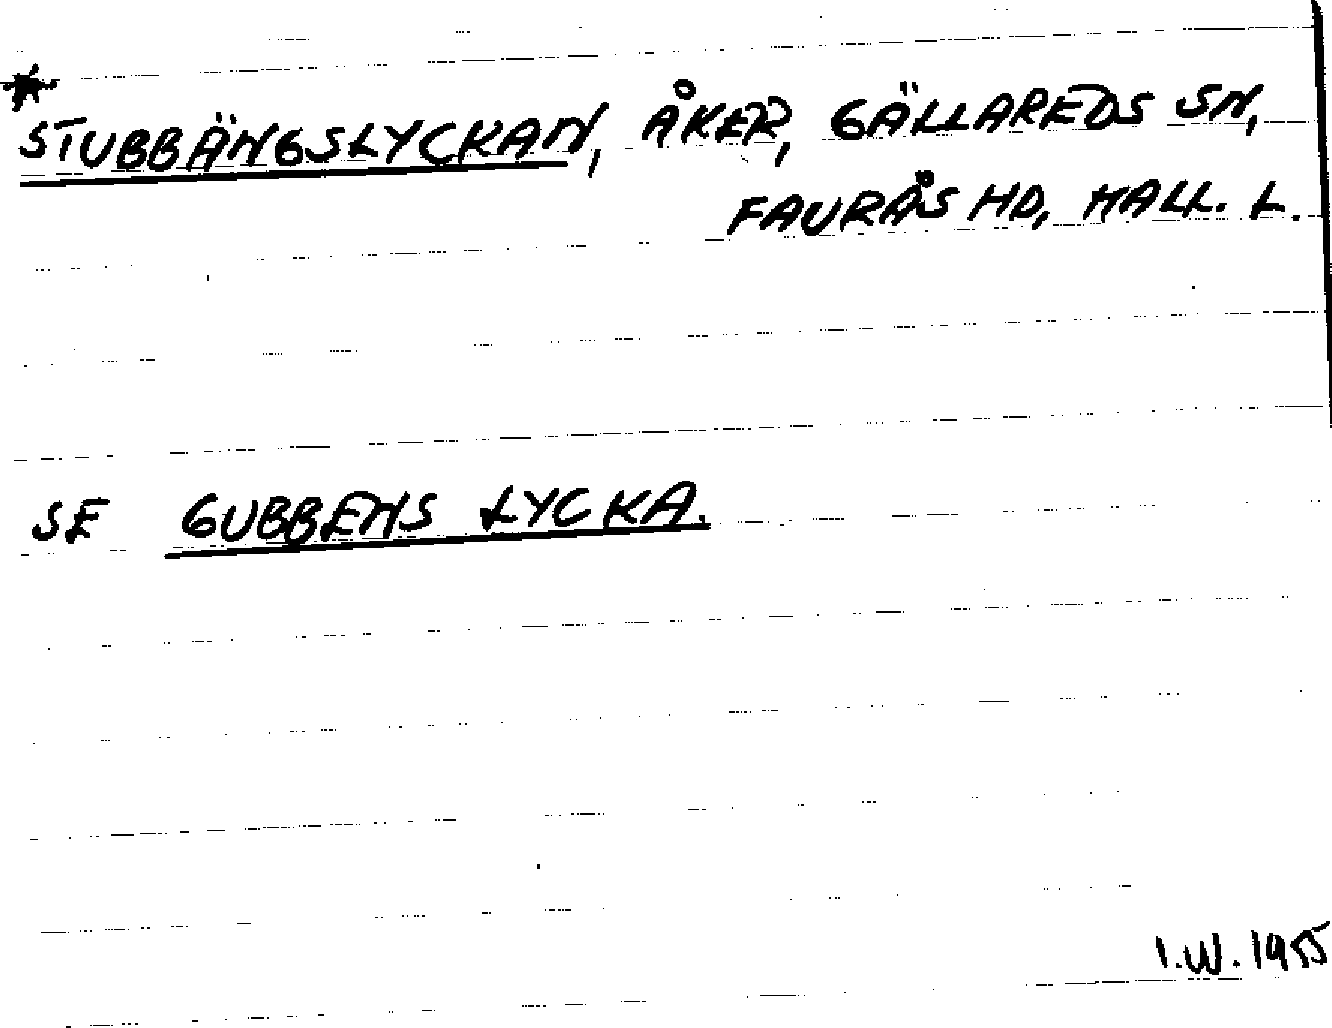 *
STUBBÄNGSLYCKAN, ÅKER, GÄLLAREDS SN,
FAURÅS HD, HALL. L.
SE GUBBENS LYCKA.
I.W. 1955